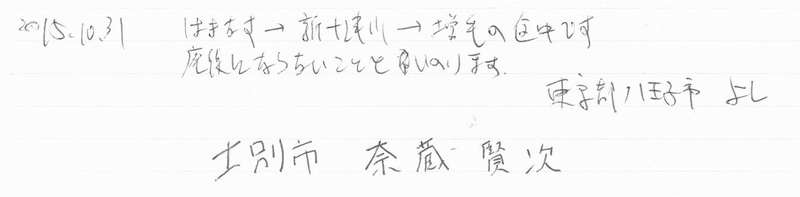 2015.10.31 はまなす→新十津川→増毛の途中です
廃線にならないことをいのります.
東京都八王子市 よし
士別市 奈蔵 賢次